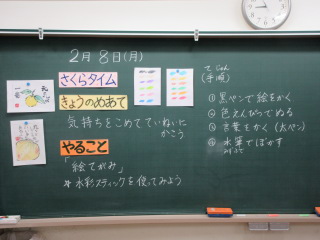 2月8日(月)
さくらタイム
きょうのめあて
気持ちをこめてていねいに
かこう
やること
「絵てがみ」
水彩スティックを使ってみよう
てじゅん
(手順)
①黒ペンで絵をかく
②色えんぴつでぬる
③言葉をかく(太ペン)
④水筆でぼかす